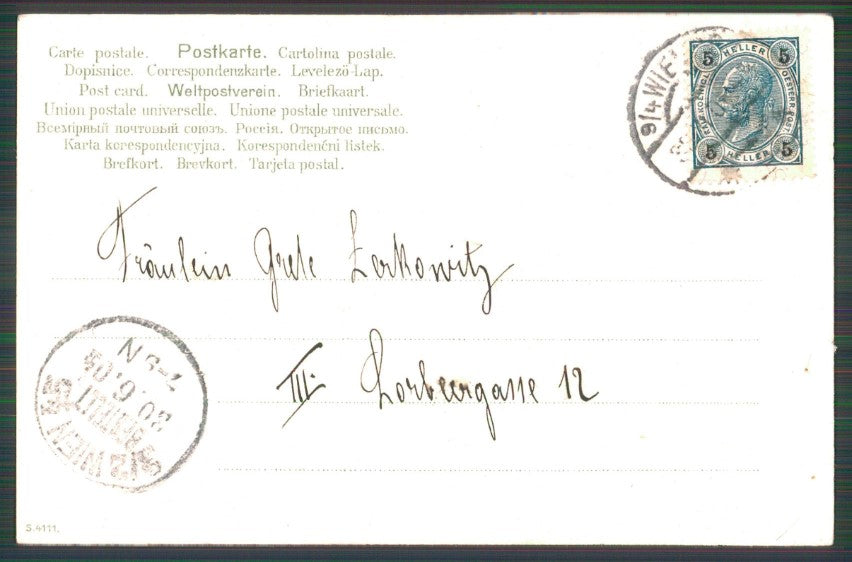 Carte postale. Postkarte. Cartolina postale.
Dopisnice. Correspondenzkarte. Levelező-Lap.
Post card. Weltpostverein. Briefkaart.
Union postale universelle. Unione postale universale.
Всемірный почтовый союзъ. Россія. Открытое письмо.
Karta korespondencyjna. Korespondenčni listek.
Brefkort. Brevkort. Tarjeta postal.
9/4 WIE
5 HELLER 5
KAIS. KÖNIGL. OESTERR. POST.
5 HELLER 5
Fräulein Grete Lerkowitz
III. Lorbeergasse 12
7-8 N
20.6.05
WIEN
S.4111.